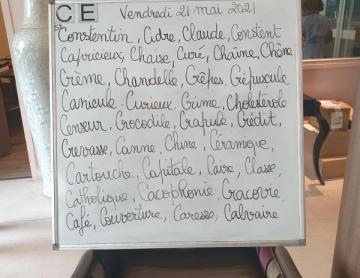 CE Vendredi 21 mai 2021
Constentin, Cidre, Claude, Constent
Capricieux, Chaise, Curé, Chaîne, Chêne
Crème, Chandelle, Crêpes, Crépuscule
Canicule, Curieux, Crime, Cholétérole
Censeur, Crocodile, Crapule, Crédit,
Crevasse, Canne, Chine, Céramique,
Cartouche, Capitale, Caire, Classe,
Catholique, Cacophonie, Cracovie,
Café, Couverture, Caresse, Calvaire.